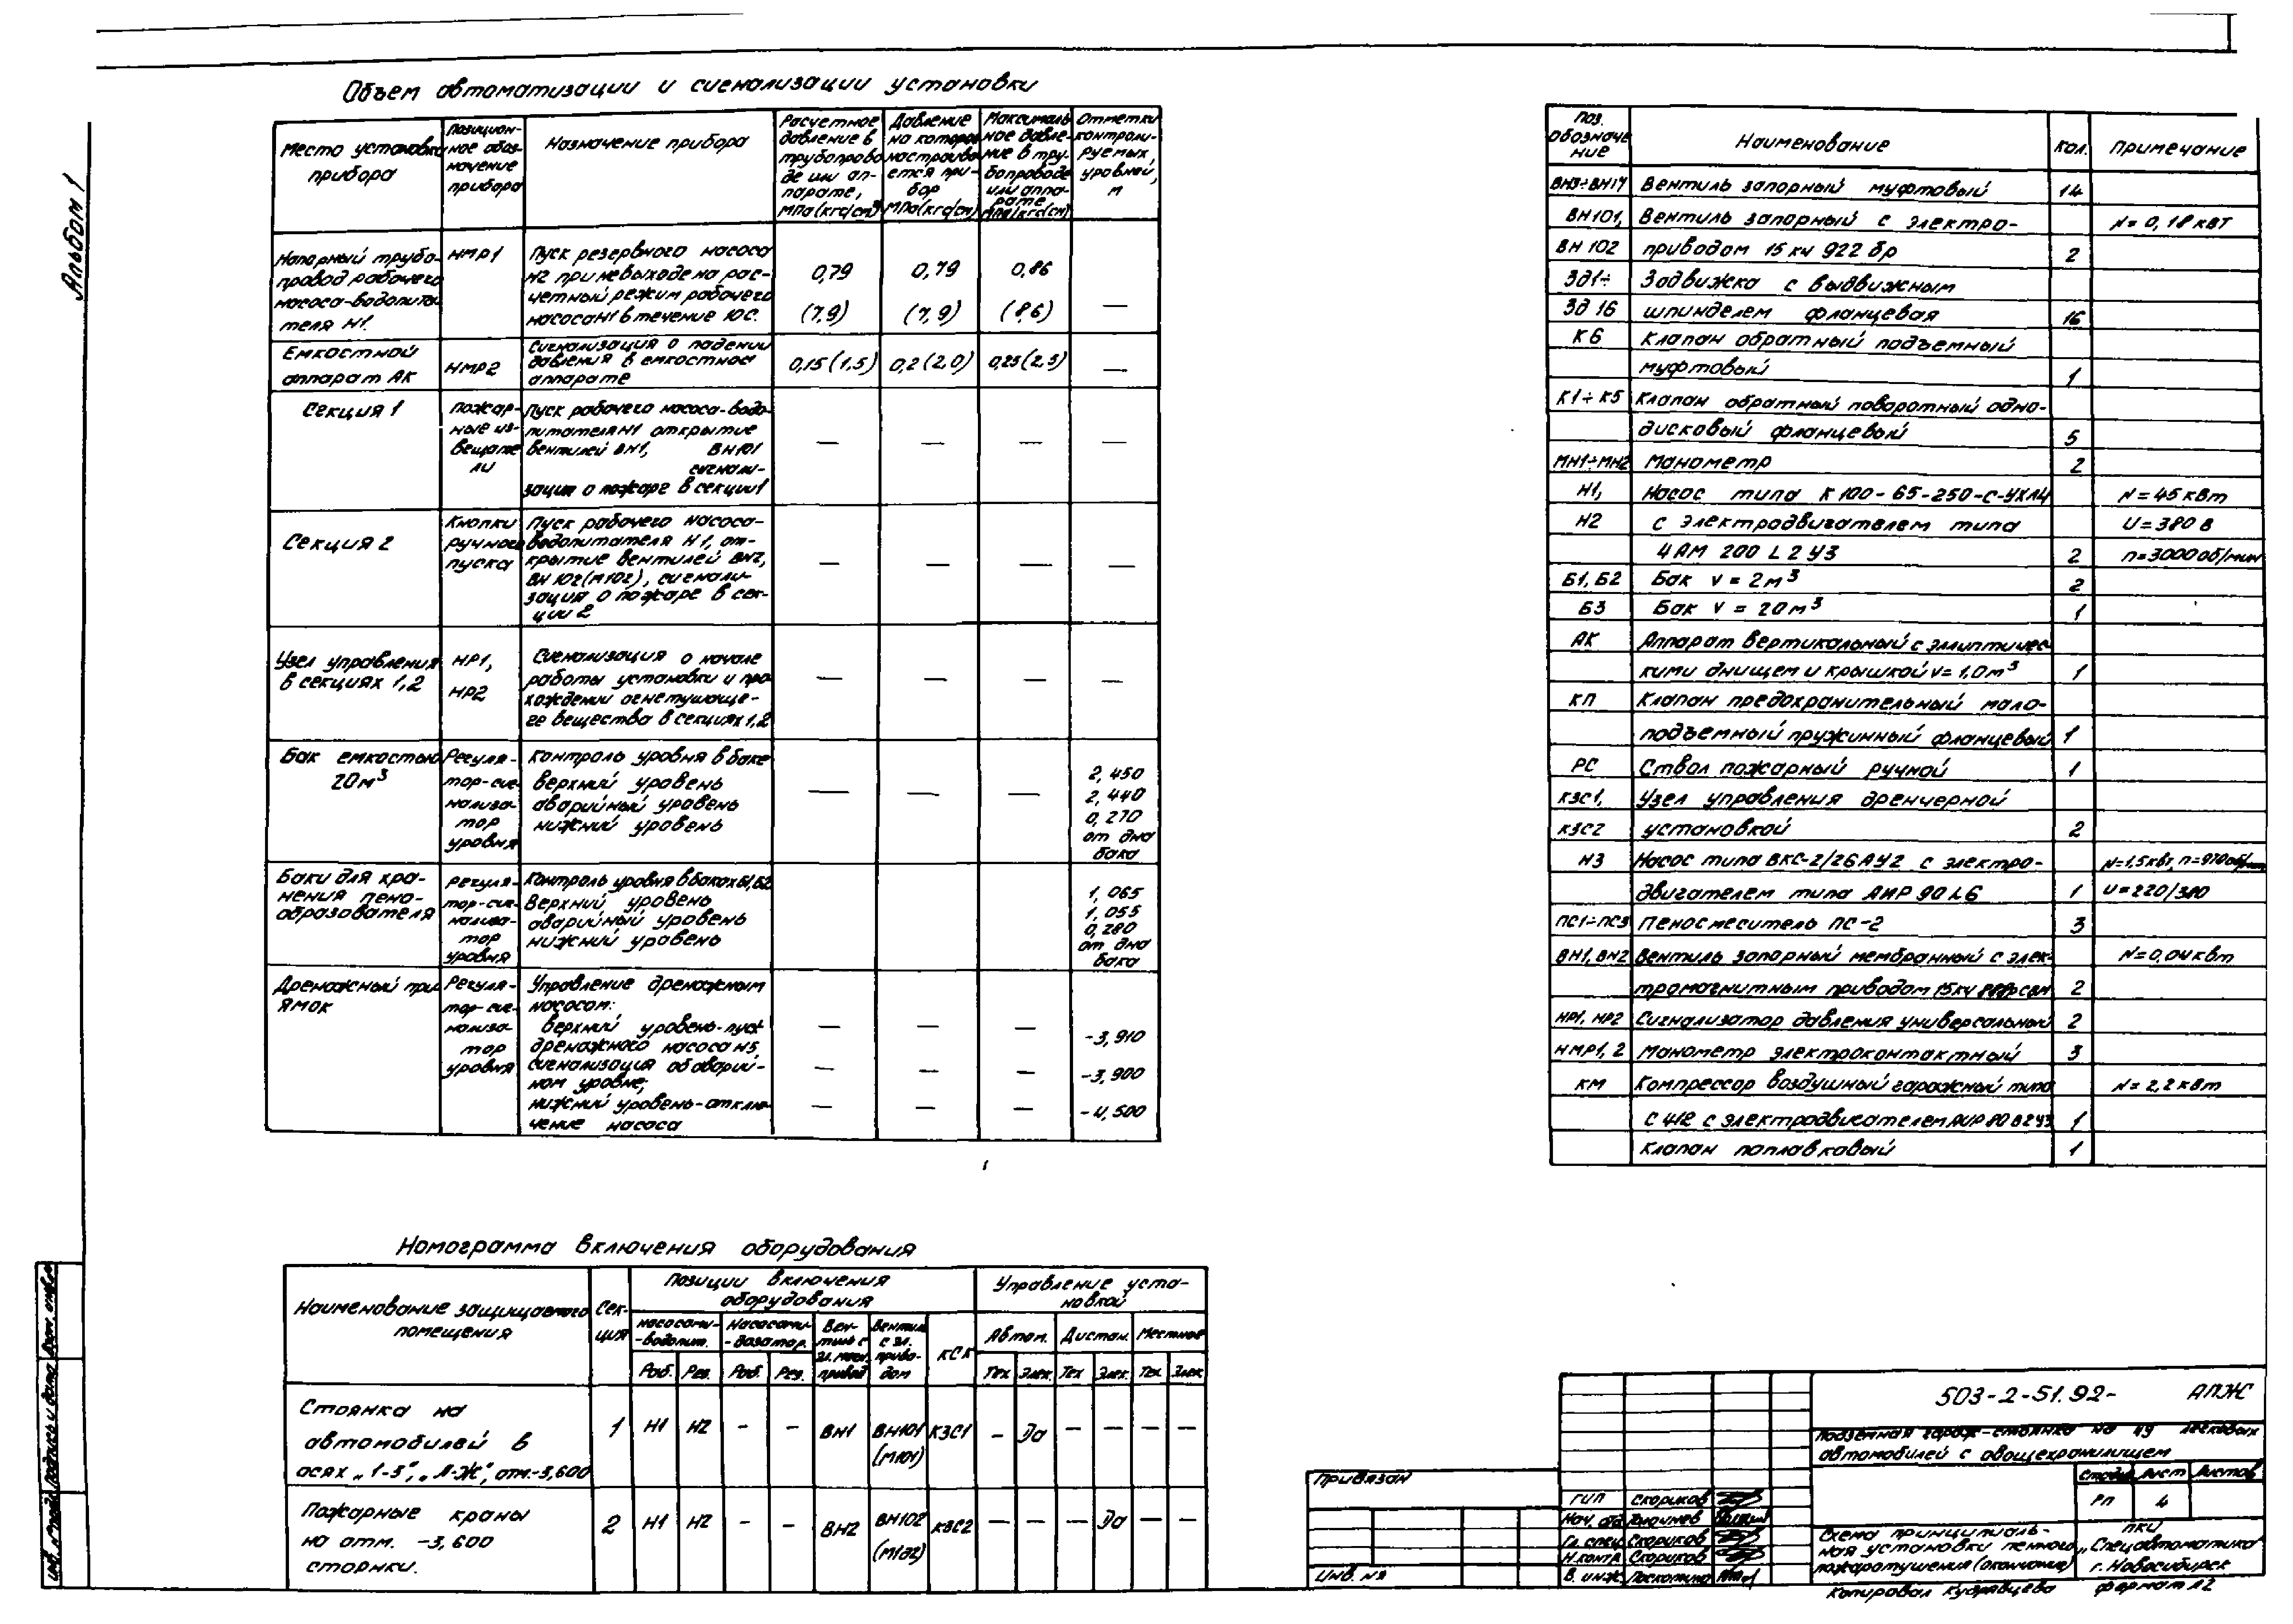 Альбом 1
Объем автоматизации и сигнализации установки
Место установки прибора
Позицион-
ное обоз-
начение
прибора
Назначение прибора
Расчетное
давление в
трубопрово
де или ап-
парате,
МПа(кгс/см²)
Давление
на которое
настраива
ется при-
бор
МПа(кгс/см²)
Максималь
ное давле-
ние в тру-
бопроводе
или аппа-
рате
МПа(кгс/см²)
Отметки
контроли-
руемых
уровней,
м
Напорный трубо-
провод рабочего
насоса-водопита
теля Н1.
НМР1
Пуск резервного насоса
Н2 при невыходе на рас-
четный режим рабочего
насоса Н1 в течение 10с.
0,79 (7,9)
0,79 (7,9)
0,86 (8,6)
—
Емкостной
аппарат АК
НМР2
Сигнализация о падении
давления в емкостном
аппарате
0,15 (1,5)
0,2 (2,0)
0,25 (2,5)
—
Секция 1
Пожар-
ные из-
вещате
ли
Пуск рабочего насоса-водо-
питателя Н1 открытие
вентилей ВН1, ВН101
сигнали-
зация о пожаре в секции 1
— — — —
Секция 2
Кнопки
ручного
пуска
Пуск рабочего насоса-
водопитателя Н1, от-
крытие вентилей ВН2,
ВН 102 (М102), сигнали-
зация о пожаре в сек-
ции 2
— — — —
Узел управления
в секциях 1,2
НР1,
НР2
Сигнализация о начале
работы установки и про
хождении огнетушаще-
го вещества в секциях 1,2
— — — —
Бак емкостью
20м³
Регуля-
тор-сиг
нализа-
тор
уровня
Контроль уровня в баке
верхний уровень
аварийный уровень
нижний уровень
— — —
2,450
2,440
0,270
от дна
бака
Баки для хра-
нения пено-
образователя
Регуля-
тор-сиг-
нализа-
тор
уровня
Контроль уровня в баках Б1,Б2
Верхний уровень
аварийный уровень
нижний уровень
1,065
1,055
0,280
от дна
бака
Дренажный при
ямок
Регуля-
тор-сиг-
нализа-
тор
уровня
Управление дренажным
насосом:
верхний уровень-пуск
дренажного насоса Н3,
сигнализация об аварий-
ном уровне;
нижний уровень-отклю-
чение насоса
— — — -3,910
— — — -3,900
— — — -4,500
Поз.
обозначе
ние
Наименование
Кол.
Примечание
ВН3÷ВН17 Вентиль запорный муфтовый 14
ВН101, Вентиль запорный с электро- N= 0,18 квт
ВН 102 приводом 15 кч 922 бр 2
ЗД1÷ Задвижка с выдвижным
ЗД 16 шпинделем фланцевая 16
К6 Клапан обратный подъемный
муфтовый 1
К1÷К5 Клапан обратный поворотный одно-
дисковый фланцевый 5
МН1÷МН2 Манометр 2
Н1, Насос типа К 100-65-250-С-УХЛ4 N=45 квт
Н2 с электродвигателем типа U=380 в
4АМ 200 L 2 У3 2 n=3000 об/мин
Б1, Б2 Бак V = 2м³ 2
Б3 Бак V = 20м³ 1
АК Аппарат вертикальный с эллиптичес
кими днищем и крышкой V=1,0м³ 1
КП Клапан предохранительный мало-
подъемный пружинный фланцевый 1
РС Ствол пожарный ручной 1
КЗС1, Узел управления дренчерной
КЗС2 установкой 2
Н3 Насос типа ВКС-2/26АУ2 с электро- N=1,5квт, n=910об/мин
двигателем типа АИР 90 L6 1 U=220/380
ПС1÷ПС3 Пеносмеситель ПС-2 3
ВН1, ВН2 Вентиль запорный мембранный с элек- N=0,04квт
тромагнитным приводом 15кч 2
НР1, НР2 Сигнализатор давления универсальный 2
НМР1, 2 Манометр электроконтактный 3
КМ Компрессор воздушный гаражный типа N= 2,2 квт
С 412 с электродвигателем АИР 80 В2У3 1
Клапан поплавковый 1
Номограмма включения оборудования
Наименование защищаемого
помещения
Сек-
ция
Позиции включения
оборудования
Управление уста-
новкой
Насосами-
-водопит.
Насосами-
-дозатор.
Вен-
тиль с
эл. магн.
привод
Вентиль
с эл.
приво-
дом
КСК
Автом. Дистан. Местное
Раб. Рез. Раб. Рез.
Тех Элек. Тех Элек. Тех Элек
Стоянка на
автомобилей в
осях „1-3", „А-Ж", отм.-3,600
1 Н1 Н2 - - ВН1 ВН101 (М101) КЗС1 — Да — — — —
Пожарные краны
на отм. -3,600
стоянки.
2 Н1 Н2 - - ВН2 ВН102 (М102) КЗС2 — — — Да — —
Привязан
Инв. №
503-2-51.92- АПЖ
Подземная гараж-стоянка на 49 легковых
автомобилей с овощехранилищем
Стадия Лист Листов
РП 4
ГИП Скориков
Нач. отд
Гл. спец Скориков
Н.контр. Скориков
В. инж.
Схема принципиаль-
ная установки пенного
пожаротушения (окончание)
ПКИ
„Спецавтоматика"
г. Новосибирск
Копировал Кудрявцева Формат А2
Инв. № подл. Подпись и дата Взам. инв. №